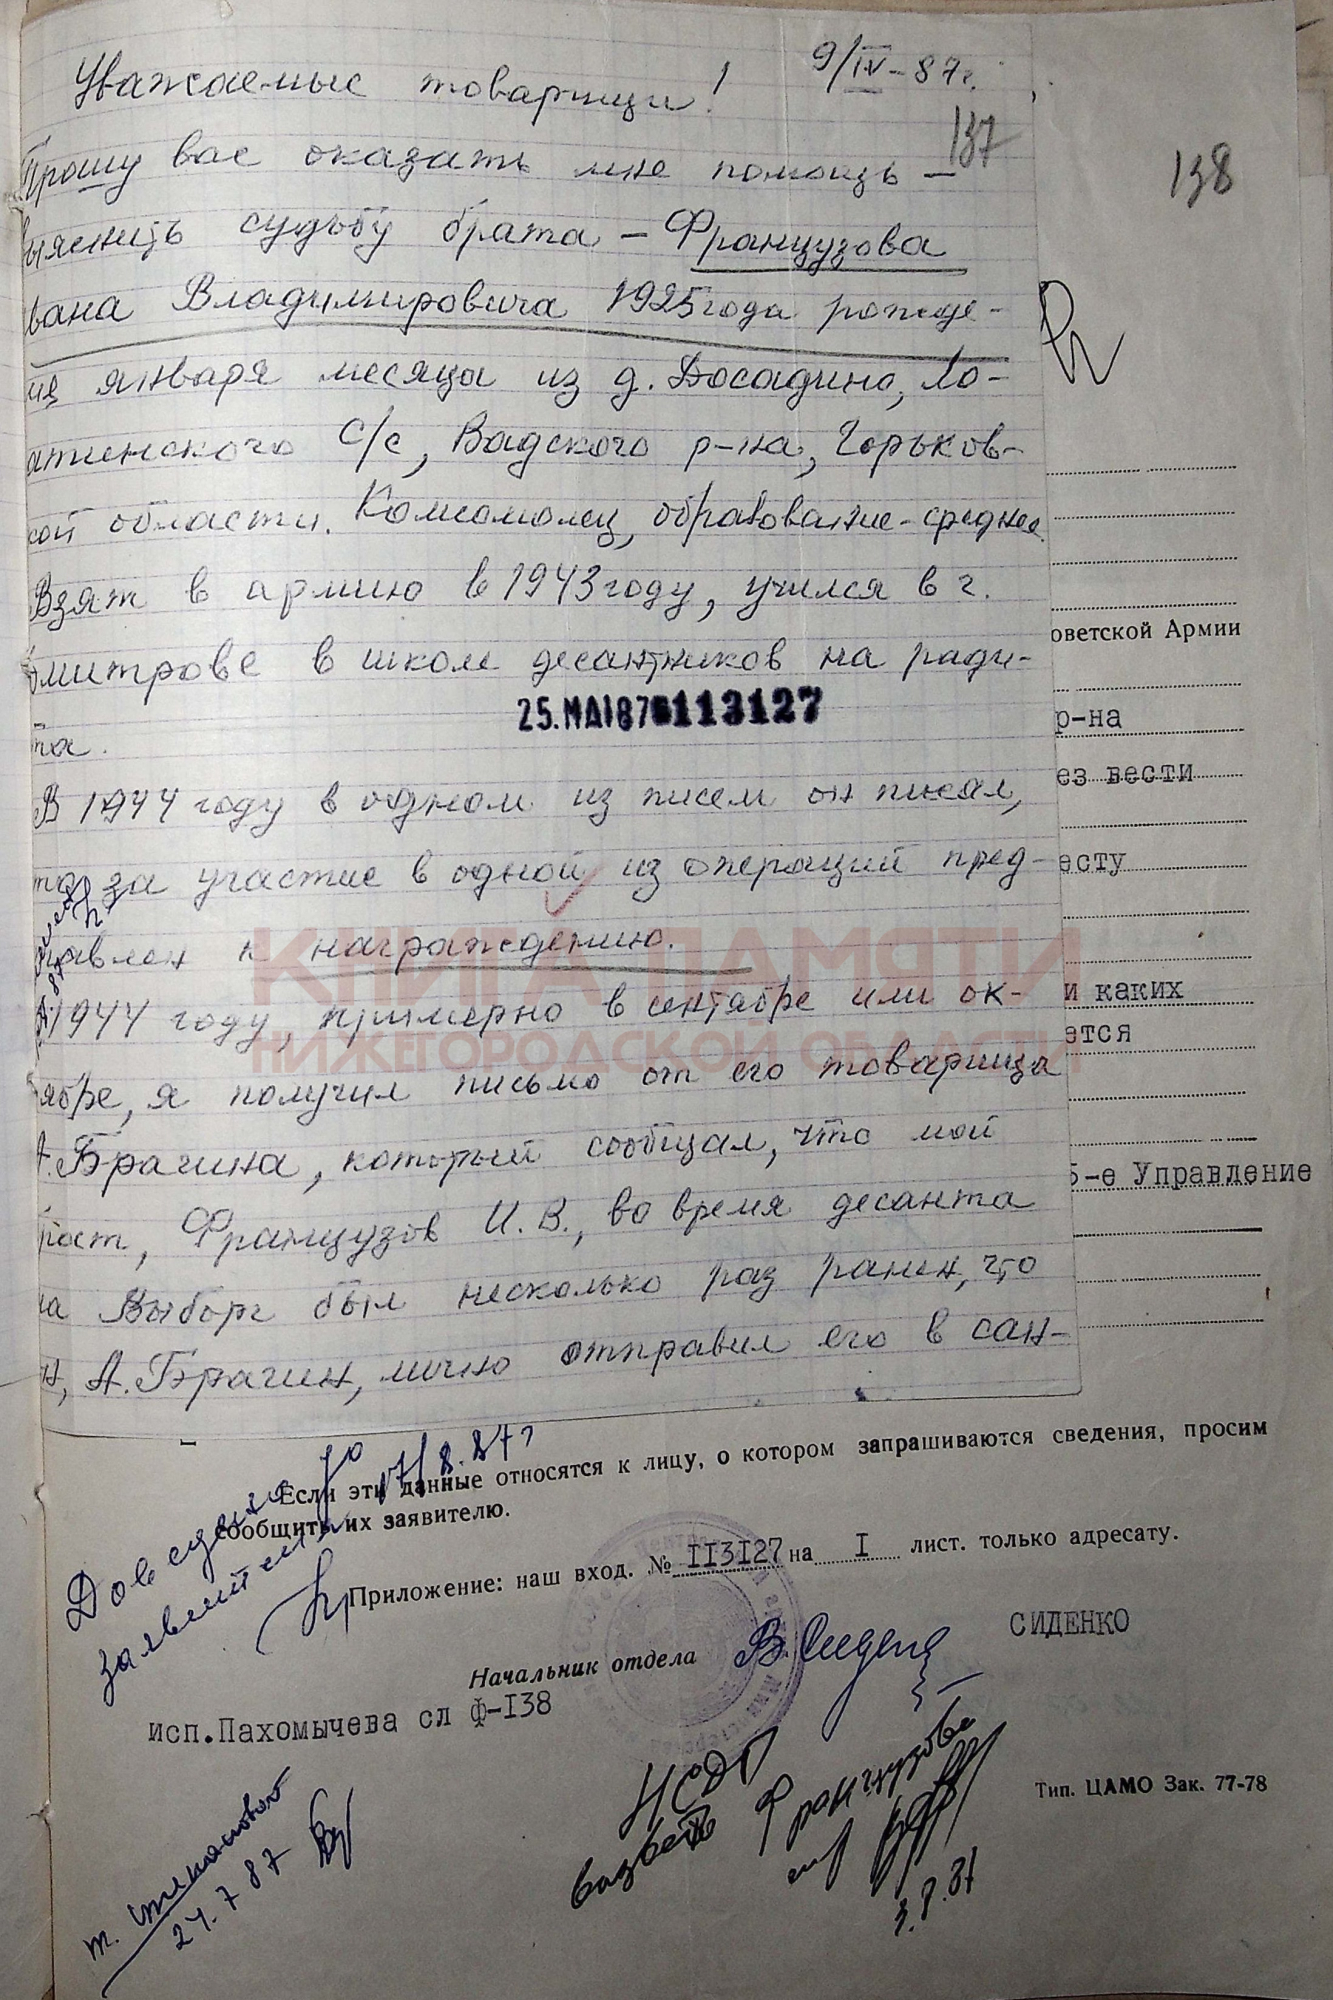 9/IV-87г.
Уважаемые товарищи!
137
138
Прошу вас оказать мне помощь –
выяснить судьбу брата – Французова
вана Владимировича 1925 года рожде-
ия января месяца из д. Досадино, Ло-
атинского С/с, Вадского р-на, Горьков-
кой области. Комсомолец, образование-среднее.
Взят в армию в 1943 году, учился в г.
митрове в школе десантников на ради-
та.
25.МАI87 113127
В 1944 году в одном из писем он писал,
то за участие в одной из операций пред-
авлен к награждению.
1944 году, примерно в сентябре или ок-
ябре, я получил письмо от его товарища
А. Брагина, который сообщал, что мой
рат, Французов И.В., во время десанта
на Выборг был несколько раз ранен, что
н, А. Брагин, лично отправил его в сан-
оветской Армии
р-на
ез вести
есту
и каких
ется
5-е Управление
КНИГА ПАМЯТИ
НИЖЕГОРОДСКОЙ ОБЛАСТИ
17/8.87г
Если эти данные относятся к лицу, о котором запрашиваются сведения, просим
сообщить их заявителю.
Приложение: наш вход. № II3I27 на I лист. только адресату.
Начальник отдела
СИДЕНКО
исп.Пахомычева сл Ф-I38
Тип. ЦАМО Зак. 77-78
Французова
24.7 87
3.8.87